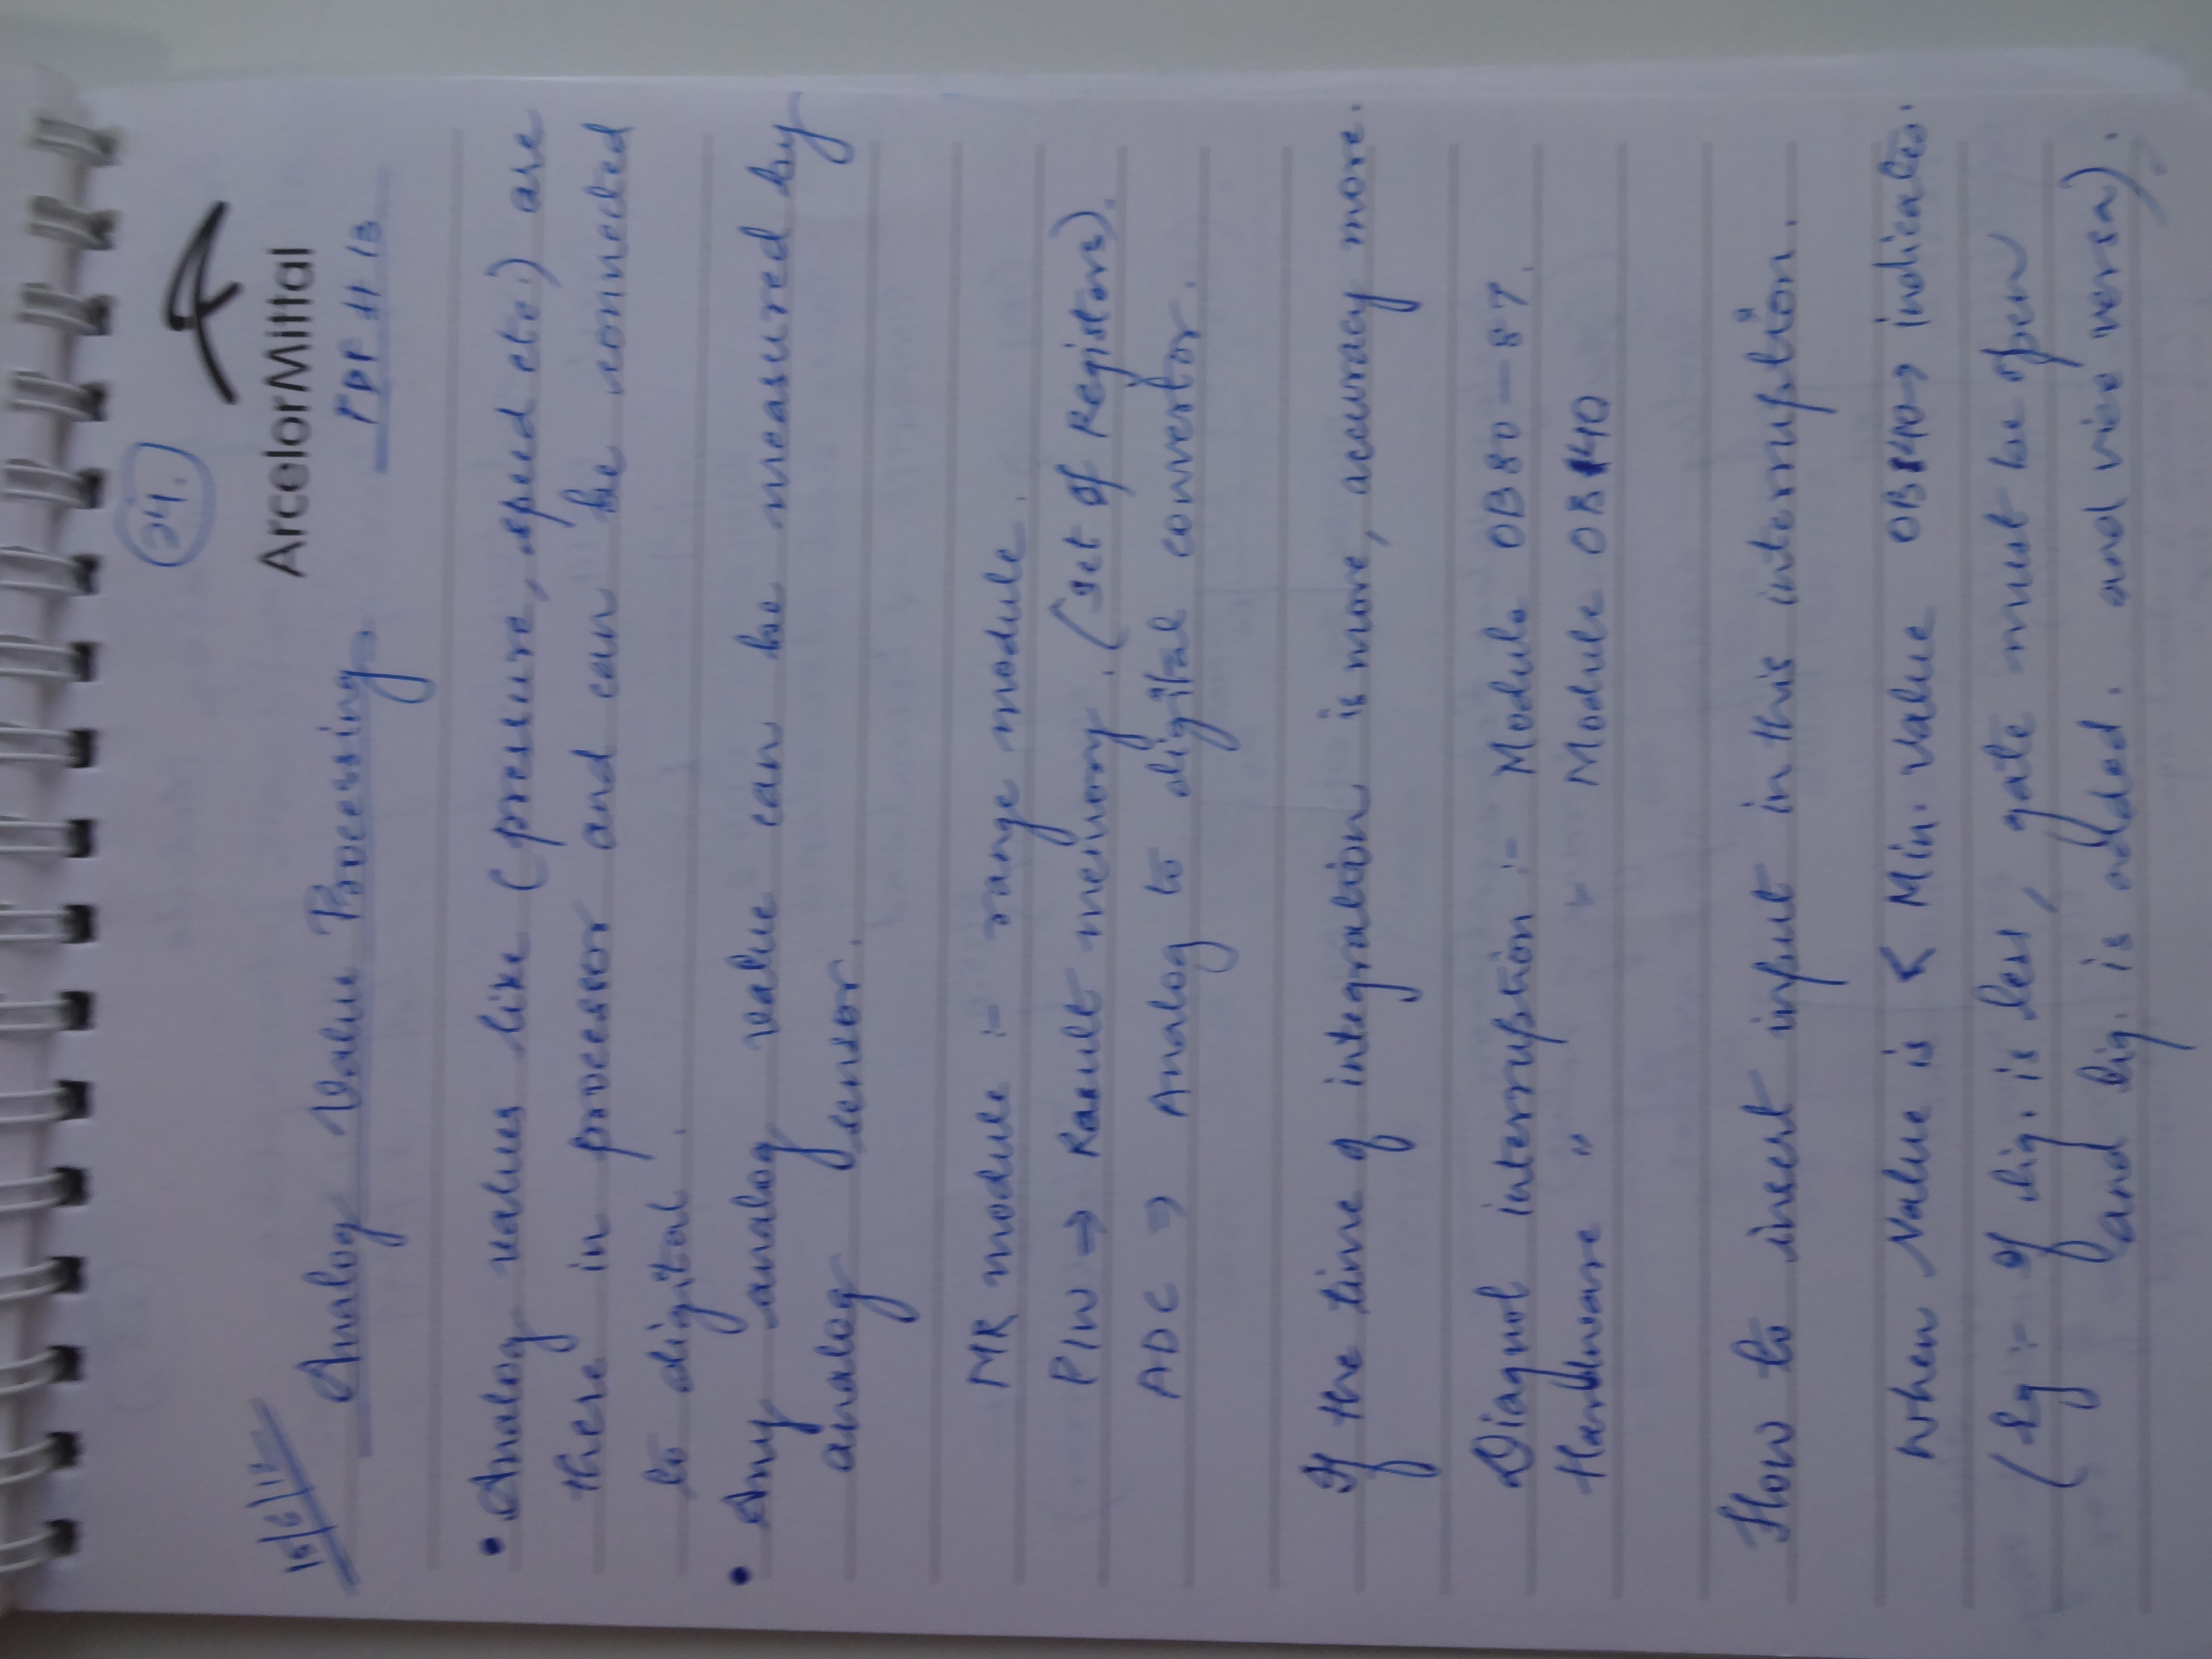 24.
ArcelorMittal
Analog Value Processing
PDF 11 B
• Analog values like (pressure, speed etc.) are
there in processor and can be connected
to digital.
• Any analog value can be measured by
analog sensor.
MR module :- range module.
PIW → Result memory. (set of Registers).
ADC → Analog to digital convertor.
If the time of integration is more, accuracy more.
Diagnol interruption :- Module OB 80 - 87.
Hardware " Module OB 40
How to insert input in this interruption.
When value is < Min. value OB 40 → indicates.
(Eg :- If liq. is less, gate must be open
and liq. is added. and vice versa).